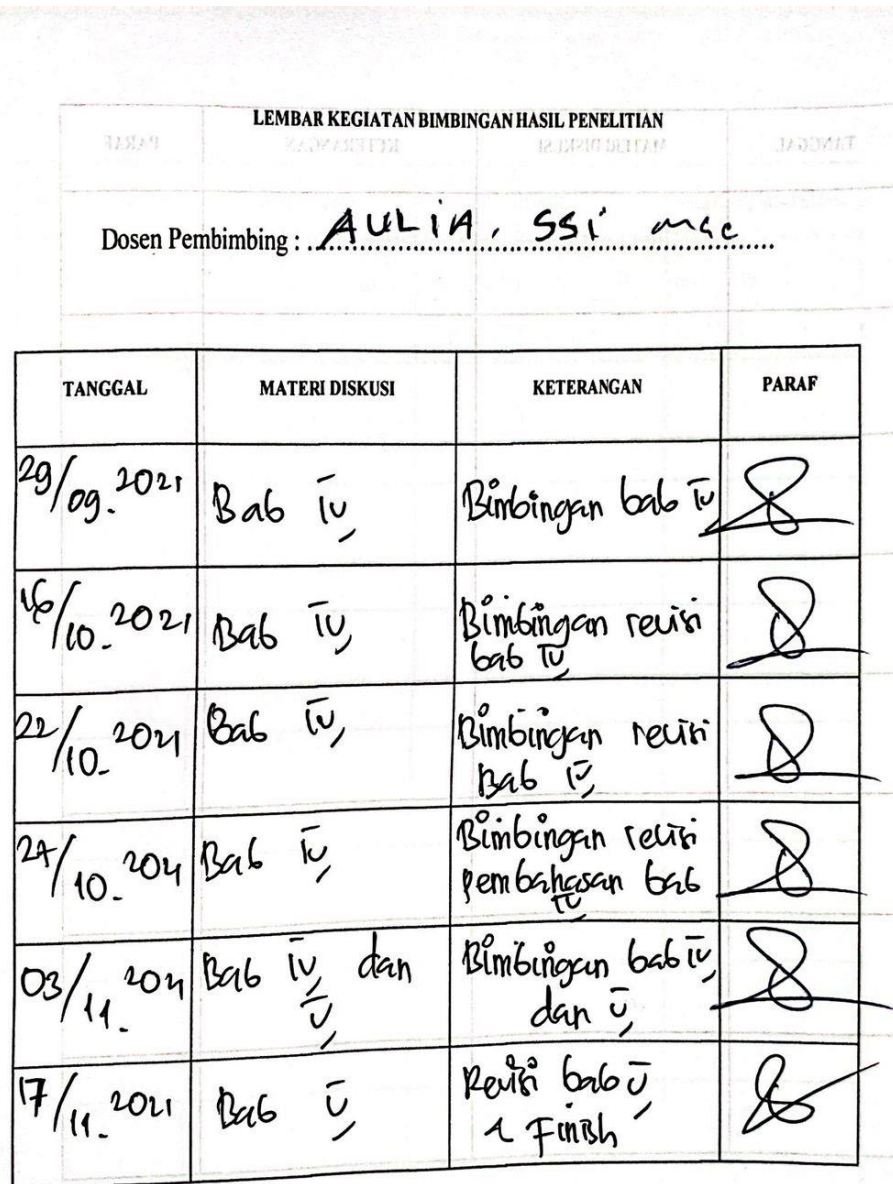 LEMBAR KEGIATAN BIMBINGAN HASIL PENELITIAN
Dosen Pembimbing : AULIA, SSi
TANGGAL MATERI DISKUSI KETERANGAN PARAF
29/09.2021 Bab IV, Bimbingan bab IV,
16/10.2021 Bab IV, Bimbingan revisi
bab IV,
22/10.2021 Bab IV, Bimbingan revisi
Bab IV,
/10.2021 Bab IV, Bimbingan revisi
pembahasan bab
IV,
03/11.2021 Bab IV, dan Bimbingan bab IV,
V, dan V,
17/11.2021 Bab V, Revisi bab V,
Finish